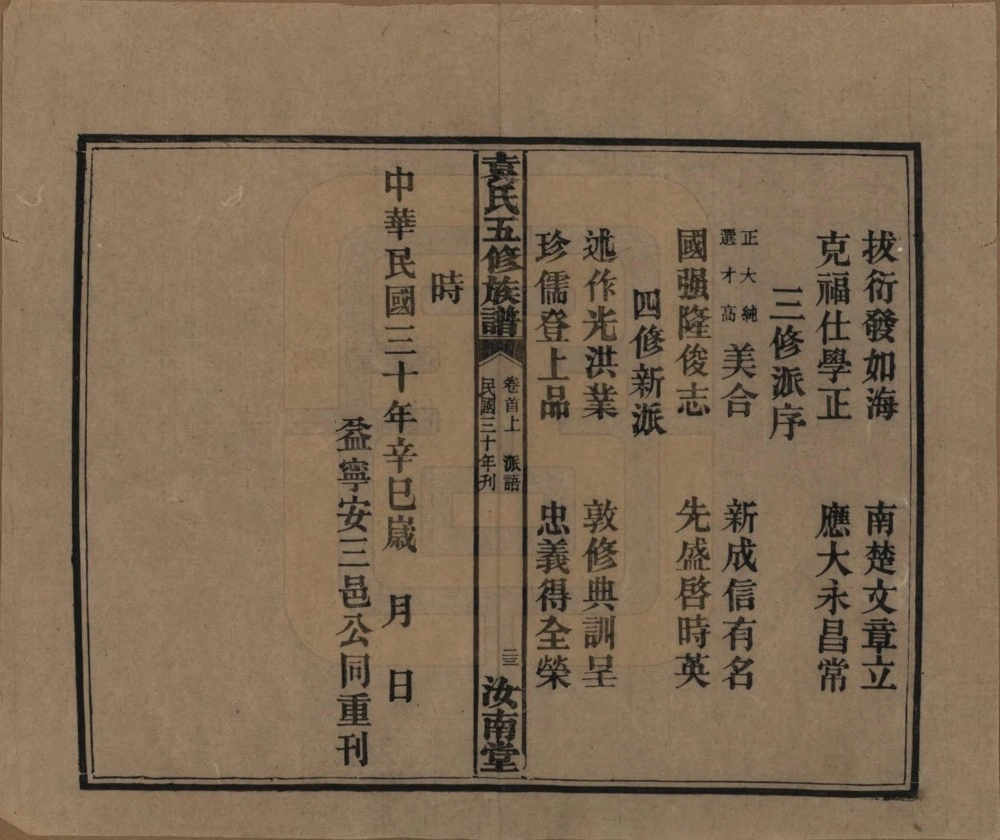 拔衍發如海　南楚文章立
克福仕學正　應大永昌常
三修派序
正大純
選才高
美合　新成信有名
國强隆俊志　先盛啓時英
四修新派
述作光洪業　敦修典訓呈
珍儒登上品　忠義得全榮
袁氏五修族譜
卷首上　派語
民國三十年刊
二三
汝南堂
時
中華民國三十年辛巳歲　月　日
益寧安三邑公同重刊